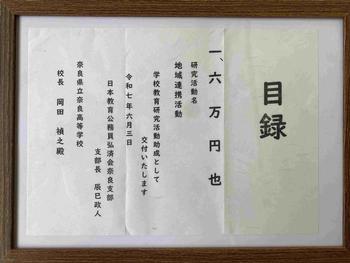 目録
一、六万円也
研究活動名
地域連携活動
学校教育研究活動助成として
交付いたします
令和七年六月三日
日本教育公務員弘済会奈良支部
支部長 辰巳政人
奈良県立奈良高等学校
校長 岡田禎之殿